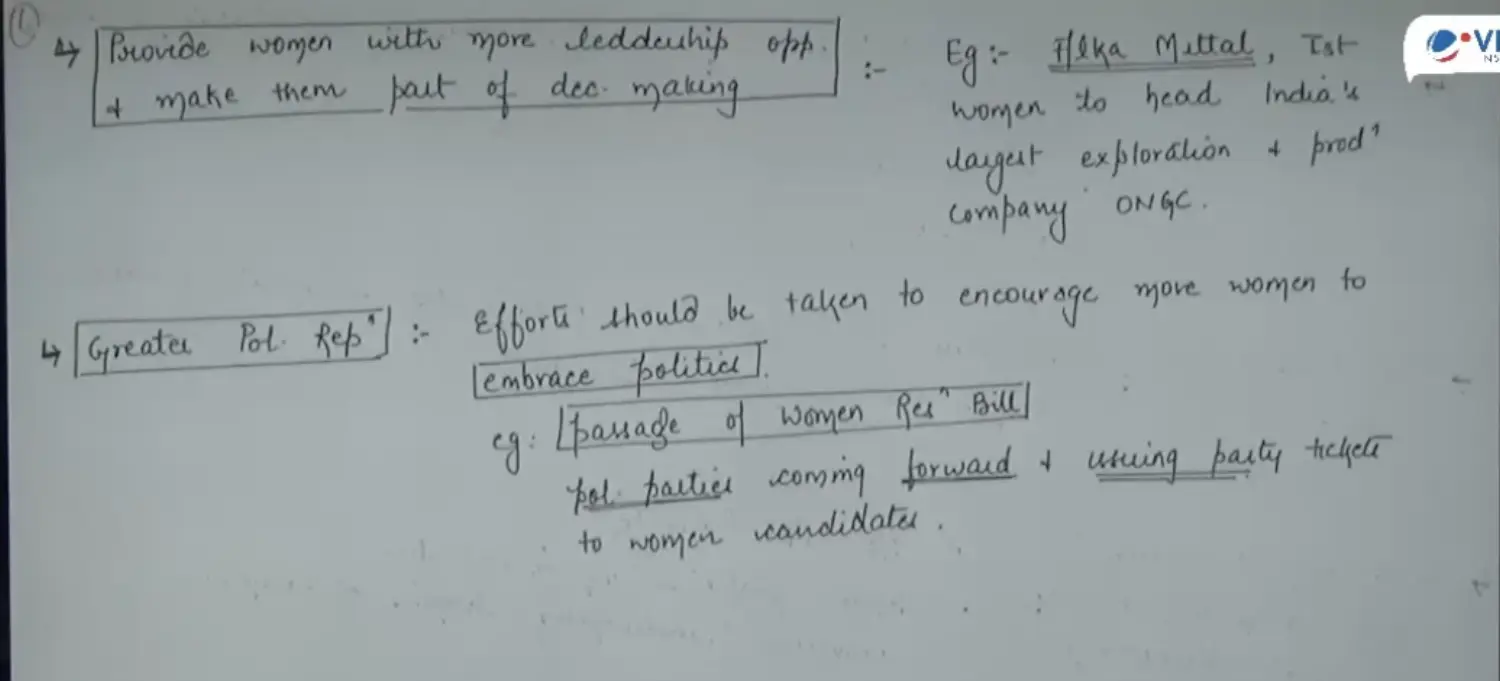 (1)
↳ Provide women with more leddership opp.
& make them part of dec. making :-
Eg :- Alka Mittal, Ist
women to head India's
largest exploration & prodⁿ
company ONGC.
↳ Greater Pol. Repⁿ :- Efforts should be taken to encourage more women to
embrace politics.
eg: passage of Women Resⁿ Bill
pol. parties coming forward & issuing party tickets
to women candidates.
VI
NS